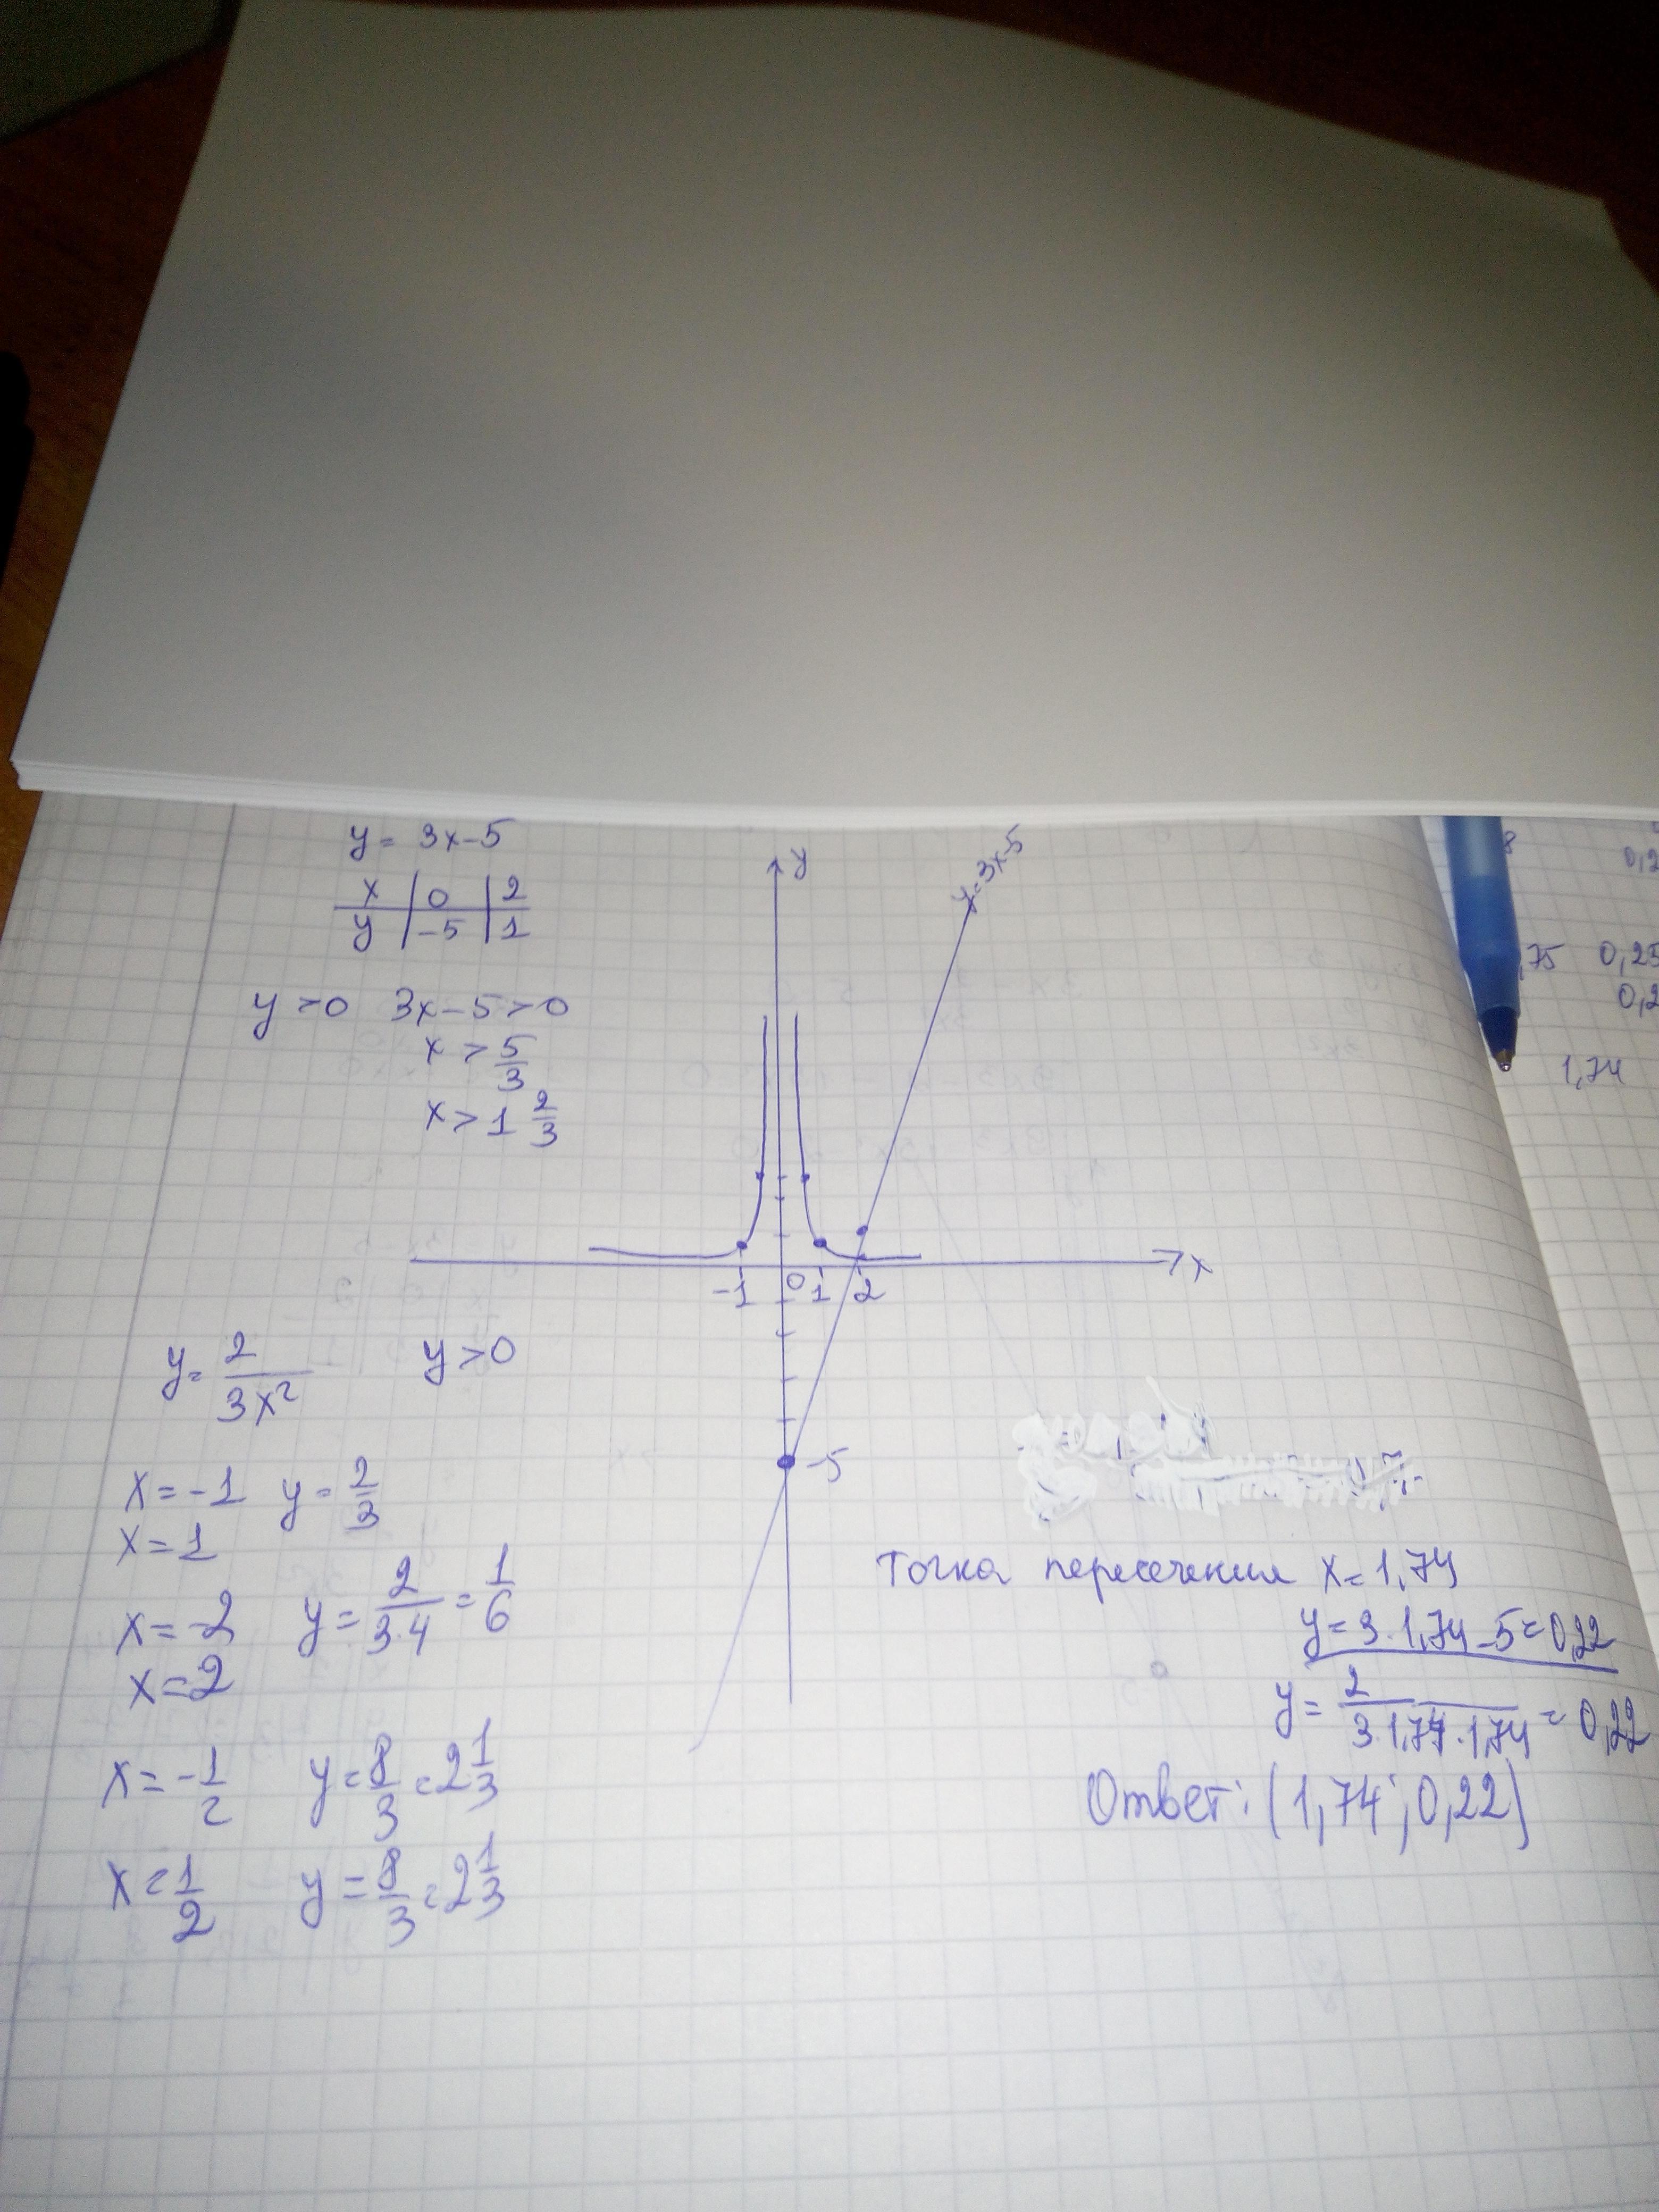 y = 3x-5
x | 0 | 2
y | -5 | 1
y >0 3x-5>0
x > 5/3
x > 1 2/3
y
y=3x-5
-1 0 1 2 x
-5
y= 2/3x² y >0
x=-1 y= 2/3
x=1
x=-2 y= 2/3·4 = 1/6
x=2
x=-1/2 y= 8/3 = 2 1/3
x= 1/2 y= 8/3 = 2 1/3
Точка пересечения x=1,74
y= 3·1,74-5=0,22
y= 2/3·1,74·1,74 = 0,22
Ответ: (1,74; 0,22)
8
0,2
,75 0,25
0,2
1,74